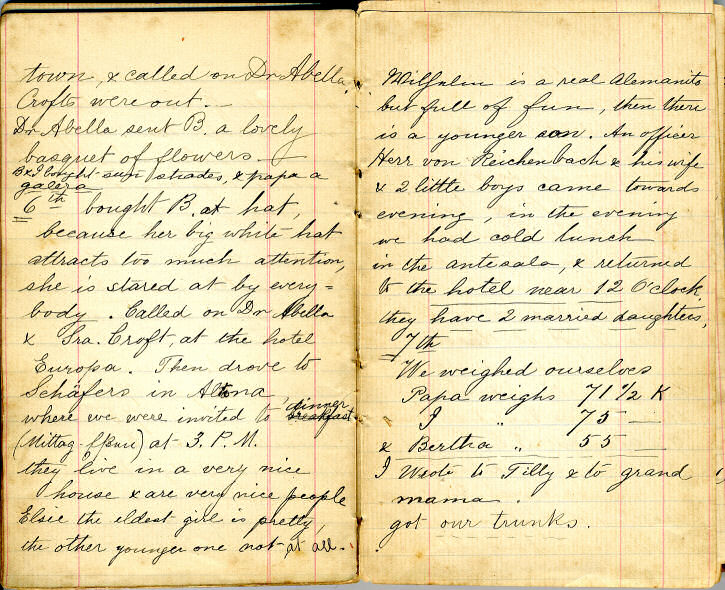 town, & called on Dr Abella,
Crofts were out. —
Dr Abella sent B. a lovely
basquet of flowers. —
B & I bought sun shades, & papa a
galera
6th bought B. at hat,
because her big white hat
attracts too much attention,
she is stared at by every=
body. Called on Dr Abella
& Sra. Croft, at the hotel
Europa. Then drove to
Schäfers in Altona,
where we were invited to dinner breakfast
(Mittag-Essen) at 3. P.M.
they live in a very nice
house & are very nice people
Elsie the eldest girl is pretty,
the other younger one not at all.
Wilhelm is a real Alemanito
but full of fun, then there
is a younger son. An officer
Herr von Reichenbach & his wife
& 2 little boys came towards
evening, in the evening
we had cold lunch
in the antesala, & returned
to the hotel near 12 O'clock,
they have 2 married daughters,
7th
We weighed ourselves
Papa weighs 71 1/2 K
I " 75 —
& Bertha " 55 —
I Wrote to Tilly & to grand
mama.
got our trunks.